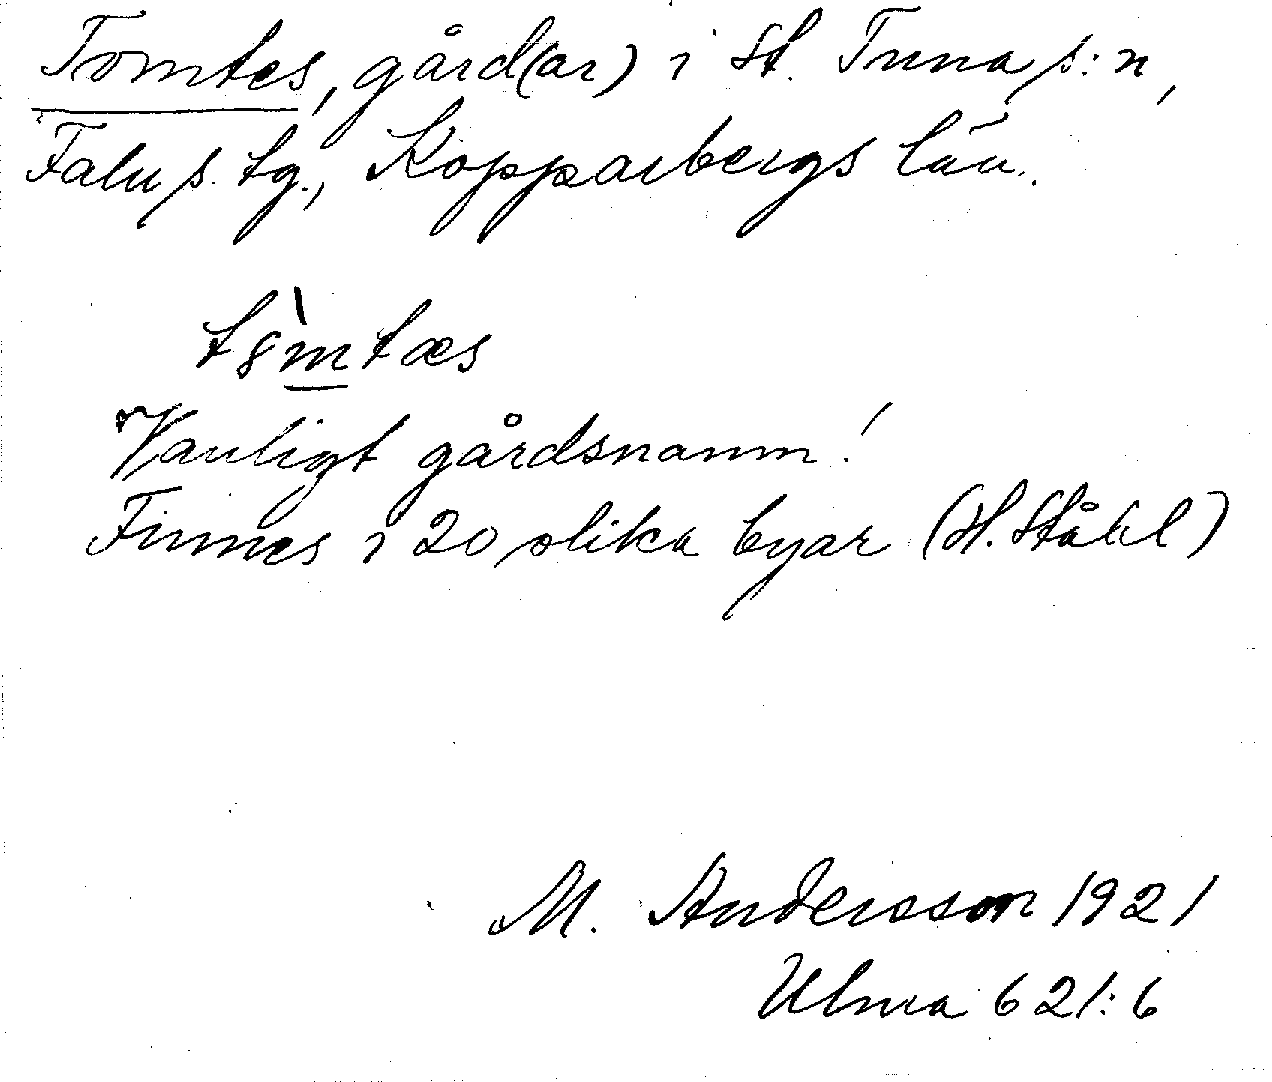 Tomtes, gård(ar) i St. Tuna s:n,
Falu s. tg., Kopparbergs län.
Vanligt gårdsnamn!
Finnes i 20 olika byar (H. Ståhl)
M. Andersson 1921
Ulma 621:6